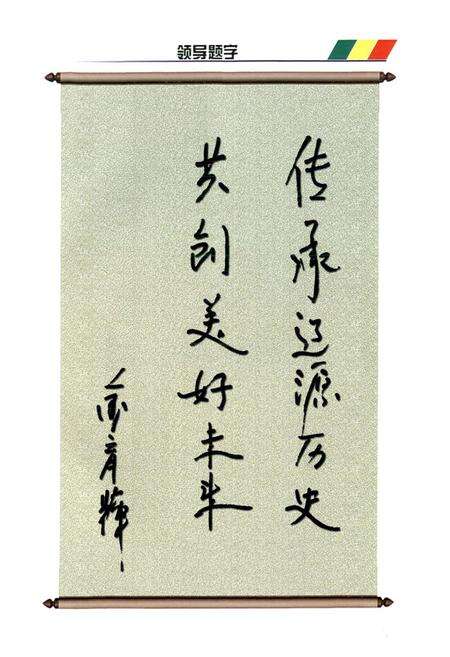 领导题字
传承辽源历史
共创美好未来